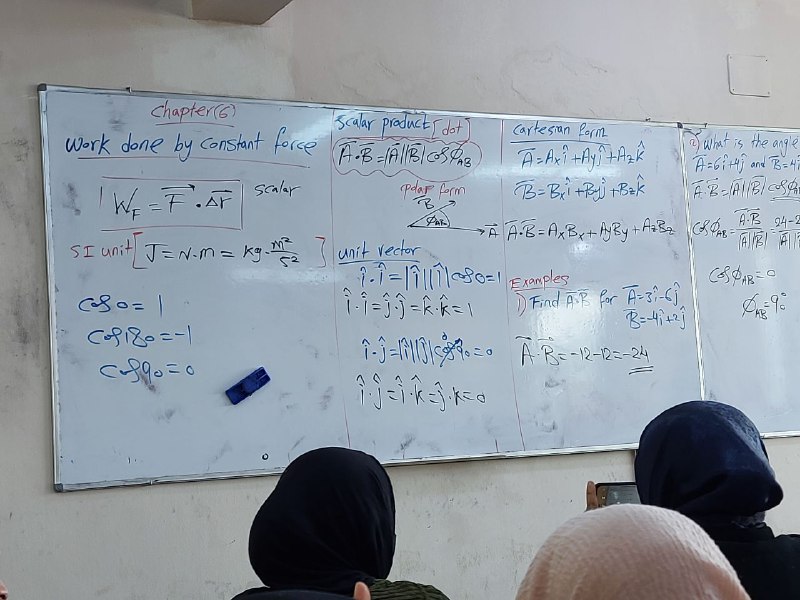 Chapter(6)
Work done by constant force
W_F = F⃗ . Δr⃗ scalar
SI unit [J = N.m = kg . m²/s²]
cos 0 = 1
cos 180 = -1
cos 90 = 0
Scalar product [dot]
A̅.B̅ = |A̅||B̅| cos φ_AB
polar form
B̅
φ_AB
A̅
unit vector
î.î = |î||î| cos 0 = 1
î.î = ĵ.ĵ = k̂.k̂ = 1
î.ĵ = |î||ĵ| cos 90 = 0
î.ĵ = î.k̂ = ĵ.k̂ = 0
cartesian form
A̅ = Axî + Ayĵ + Azk̂
B̅ = Bxî + Byĵ + Bzk̂
A̅.B̅ = AxBx + AyBy + AzBz
Examples
1) Find A̅.B̅ for A̅ = 3î - 6ĵ
B̅ = -4î + 2ĵ
A̅.B̅ = -12 - 12 = -24
2) What is the angle
A̅ = 6î + 4ĵ and B̅ = 4î
A̅.B̅ = |A̅||B̅| cos φ
cos φ_AB = A̅.B̅/|A̅||B̅| = 24-2
cos φ_AB = 0
φ_AB = 90°